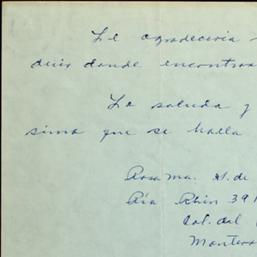 Le agradeceria
decir donde encontrar
La saluda y
sima que se halla
Rosa Ma. H. de
Río Rhin 391
Col. del
Monterr